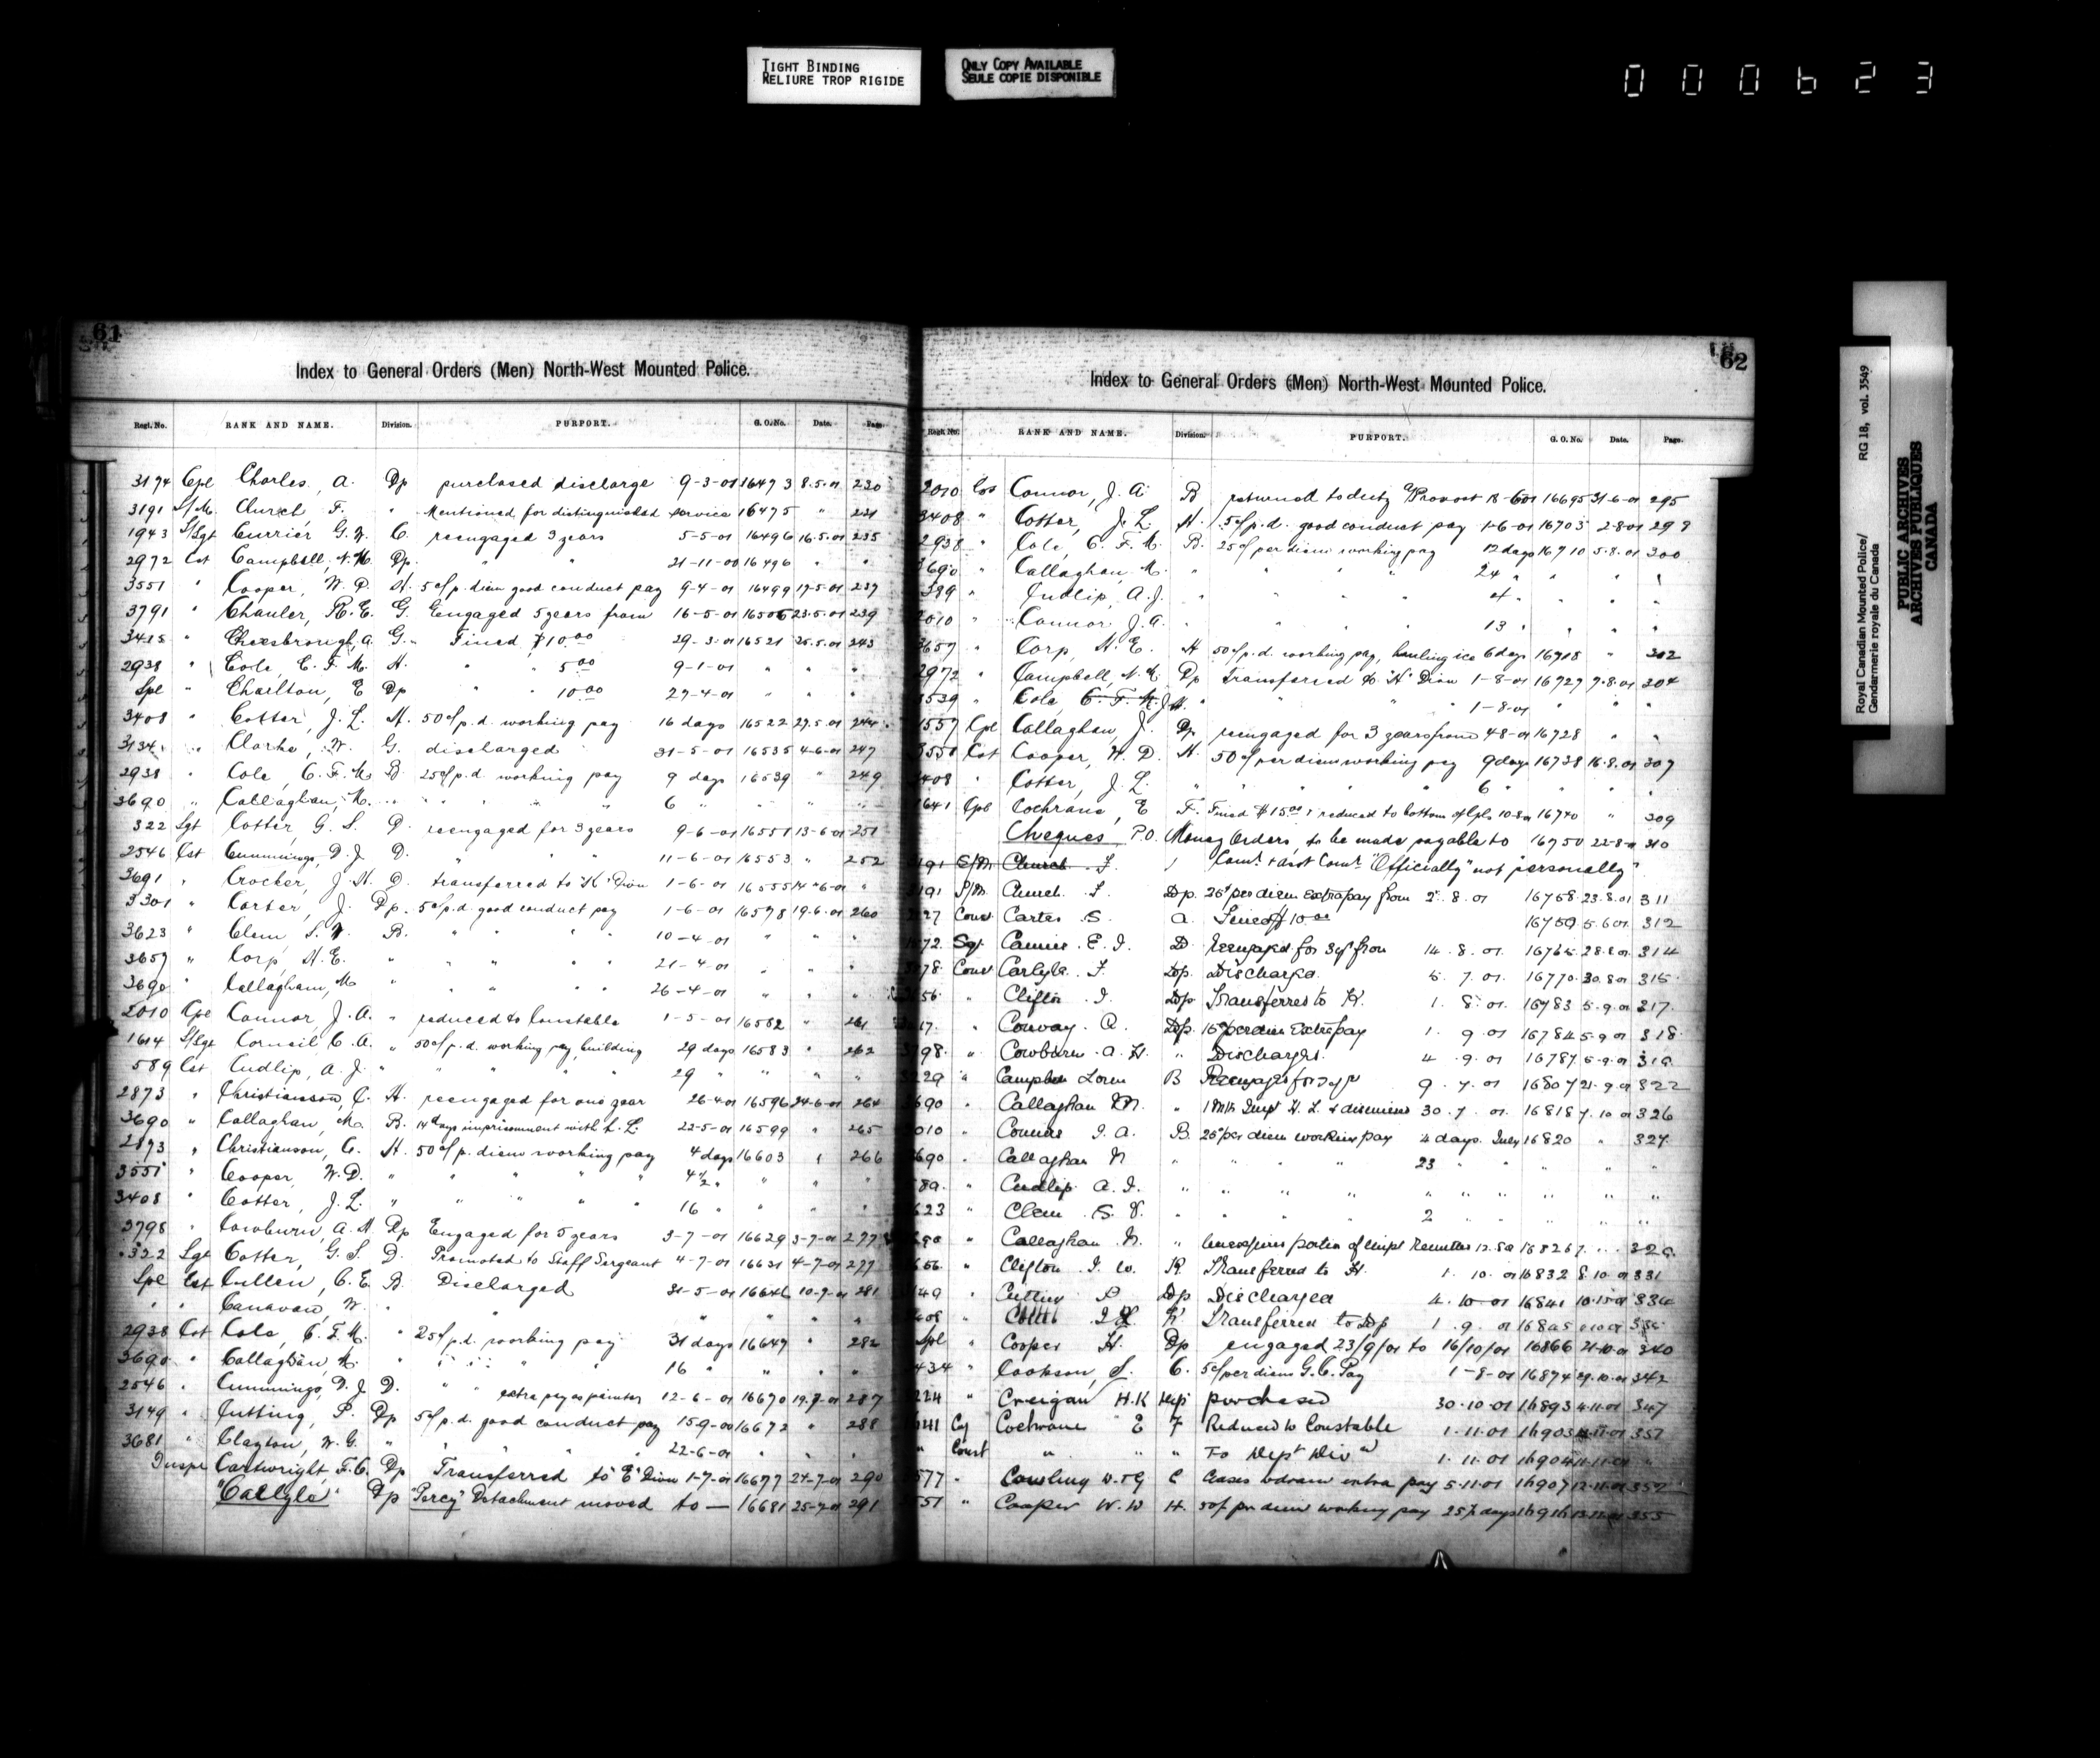 TIGHT BINDING
RELIURE TROP RIGIDE
ONLY COPY AVAILABLE
SEULE COPIE DISPONIBLE
000623
61
Index to General Orders (Men) North-West Mounted Police.
Regt. No. RANK AND NAME. Division. PURPORT. G. O. No. Date. Page.
3174 Cpl Charles, A. Dp purchased discharge 9-3-01 16473 8.5.01 230
3191 S/M. Church F. " Mentioned for distinguished service 16475 " 231
1943 S/Sgt Currier G.W. C. reengaged 3 years 5-5-01 16496 16.5.01 235
2972 Cst Campbell, N.M. Dp. " " 21-11-00 16496 " "
3551 " Cooper, W.D. H. 5c/p.diem good conduct pay 9-4-01 16499 17-5-01 237
3791 " Chauler, R.E. G. Engaged 5 years from 16-5-01 16506 23-5-01 239
3418 " Cheesbrough, A. G. Fined $10.00 29-3-01 16521 25.5.01 243
2938 " Cole, C.F.M. H. " " 5.00 9-1-01 " " "
Spl " Charlton, E Dp " " 10.00 27-4-01 " " "
3408 " Cotter, J.L. H. 50c/p.d. working pay 16 days 16522 27.5.01 244
3134 " Clarke, W. G. discharged 31-5-01 16535 4-6-01 247
2938 " Cole, C.F.M. B. 25c/p.d. working pay 9 days 16539 " 249
3690 " Callaghan, M. " " " " 6 " " " "
322 Sgt Cotter, G.S. D. reengaged for 3 years 9-6-01 16551 13-6-01 251
2546 Cst Cummings, D.J. D. " " " 11-6-01 16553 " 252
3691 " Crocker, J.H. D. transferred to "K" Divn 1-6-01 16555 14-6-01 "
3301 " Carter, J. Dp. 5c/p.d. good conduct pay 1-6-01 16578 19-6-01 260
3623 " Clem S.V. B. " " " " 10-4-01 " " "
3657 " Corp, H.E. " " " " " 21-4-01 " " "
3690 " Callaghan, M " " " " " 26-4-01 " " "
2010 Cpl Connor, J.A. " reduced to Constable 1-5-01 16582 " 261
1614 S/Sgt Corneil C.A. " 50c/p.d. working pay, building 29 days 16583 " 262
589 Cst Cudlip, A.J. " " " " " 29 " " " "
2873 " Christianson, C. H. reengaged for one year 26-4-01 16596 24-6-01 264
3690 " Callaghan, M. B. 14 days imprisonment with h.L. 22-5-01 16599 " 265
2873 " Christianson, C. H. 50c/p.diem working pay 4 days 16603 " 266
3551 " Cooper, W.D. " " " " " 4½ " " " "
3408 " Cotter, J.L. " " " " " 16 " " " "
3798 " Cowburn, A.H. Dp Engaged for 5 years 3-7-01 16629 3-7-01 277
322 Sgt Cotter, G.S. D. Promoted to Staff Sergeant 4-7-01 16631 4-7-01 277
Spl Cst Cullen, C.E. B. Discharged 31-5-01 16646 10-7-01 281
" " Canavan, W. " " " " " "
2938 Cst Cole, C.F.M. " 25c/p.d. working pay 31 days 16647 " 282
3690 " Callaghan, M. " " " " " 16 " " " "
2546 " Cummings, D.J. D. " " extra pay as painter 12-6-01 16670 19.7-01 287
3149 " Cutting, P. Dp 5c/p.d. good conduct pay 15-9-00 16672 " 288
3681 " Clayton, W.G. " " " " " 22-6-01 " " "
Inspr Cartwright, F.C. Dp Transferred to "E" Divn 1-7-01 16677 24-7-01 290
"Carlyle" Dp "Percy" Detachment moved to — 16681 25-7-01 291
62
Index to General Orders (Men) North-West Mounted Police.
Regt. No. RANK AND NAME. Division. PURPORT. G. O. No. Date. Page.
2010 Cst Connor, J.A. B returned to duty 18-6-01 16695 31-6-01 295
3408 " Cotter, J.L. H. 5c/p.d. good conduct pay 1-6-01 16703 2-8-01 298
2938 " Cole, C.F.M. B. 25c/per diem working pay 12 days 16710 5.8.01 300
3690 " Callaghan, M. " " " " 24 " " "
589 " Cudlip, A.J. " " " " 4 " " "
2010 " Connor J.A. " " " " 13 " " "
3657 " Corp, H.E. H 50c/p.d. working pay, hauling ice 6 days 16718 " 302
2972 " Campbell, N.M. Dp Transferred to "H" Divn 1-8-01 16727 7.8.01 304
3539 " Cole, C.F.M. J.H. " " 1-8-01 " " "
1557 Cpl Callaghan, J. Dp reengaged for 3 years from 4-8-01 16728 " "
3551 Cst Cooper, W.D. H. 50c/per diem working pay 9 days 16738 16.8.01 307
3408 " Cotter, J.L. " " " " 6 " " "
641 Cpl Cochrane, E F. Fined $15.00 & reduced to bottom of Cpls 10-8-01 16740 " 309
Cheques P.O. Money Orders, to be made payable to 16750 22-8-01 310
3191 S/M Church F. Comr. & Asst Comr. "Officially" not "personally".
3191 S/M. Church F. Dp. 25c per diem extra pay from 2.8.01 16758 23.8.01 311
27 Const Carter S. A. Fined $10.00 16759 5.6.01 312
72. Sgt. Currier E.I. D Reengaged for 3 yrs from 14.8.01. 16765 28.8.01 314
78. Const Carlyle F. Dp. Discharged. 5.7.01. 16770 30.8.01 315.
56. " Clifton I. Dp Transferred to K. 1.8.01. 16783 5.9.01 317.
17. " Conway. A. Dp. 15c per diem Extra pay 1.9.01 16784 5.9.01 318.
3798. " Cowburn. A.H. " Discharged. 4.9.01 16787 5.9.01 319.
29 " Campbell Loren B Reengaged for 3 yr 9.7.01 16807 21.9.01 322
3690 " Callaghan M. " 1 Mth Impt H.L. & dismissed 30.7.01. 16818 7.10.01 326
2010 " Connor J.A. B. 25c per diem working pay 4 days. July 16820 " 327.
3690 " Callaghan M " " " " 23 " " "
589. " Cudlip A.J. " " " " " " " "
3623 " Clem S.V. " " " " 2 " " "
3690 " Callaghan M. " Unexpired portion of Impt Remitted 12.8.01 16826 7. " " 329.
56. " Clifton I.W. K. Transferred to H. 1.10.01 16832 8.10.01 331
3149 " Cutting P Dp Discharged 4.10.01 16841 10.10.01 334
3408 " Cotter J.L. K Transferred to Dp 1.9.01
Spl " Cooper H. Dp engaged 23/9/01 to 16/10/01 16866 21-10-01 340
434 " Cookson, S. C. 5c/per diem G.C. Pay 1-8-01 16874 29.10.01 342
224 " Creigan H.K Dep purchased 30.10.01 16893 4.11.01 347
641 Cpl Cochrane E F Reduced to Constable 1.11.01 16903 11.11.01 351
" Const " " " To Dept Divn 1.11.01 16904 11.11.01 "
577 " Cowling W.T.G C Ceases to draw extra pay 5.11.01 16907 12.11.01 352
3551 " Cooper W.D H. 50c/per diem working pay 25½ days 16916 13.11.01 355
Royal Canadian Mounted Police/
Gendarmerie royale du Canada
RG 18, vol. 3549
PUBLIC ARCHIVES
ARCHIVES PUBLIQUES
CANADA